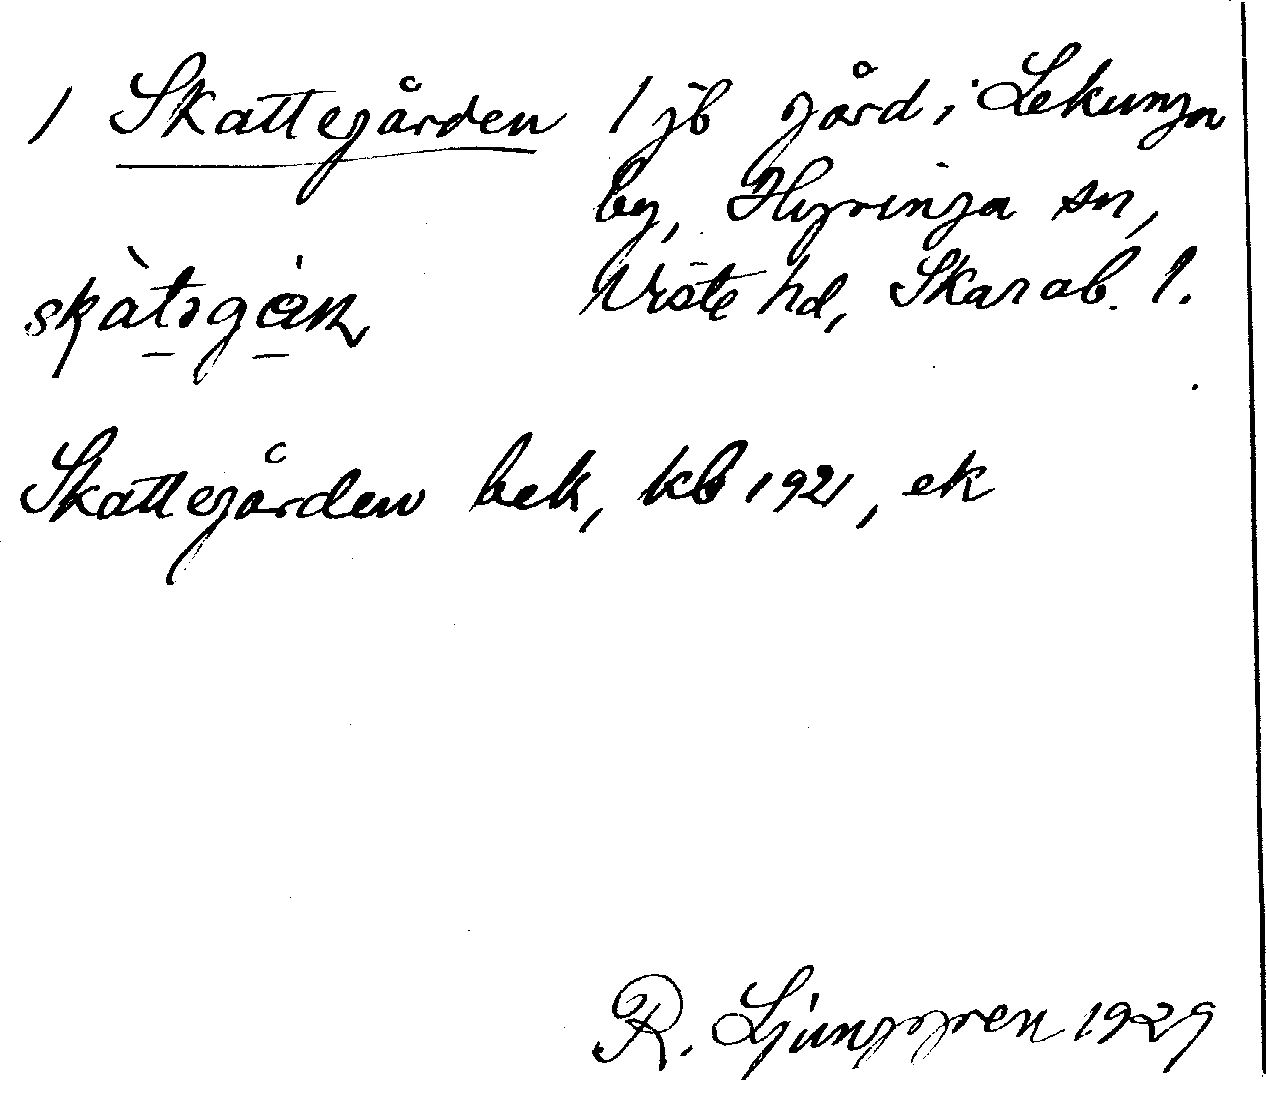 1 Skattegården 1 jb gård i Lekunga
by, Hyringa sn,
Viste hd, Skarab. l.
skàtəgàɳ
Skattegården bek, kb 1921, ek
R. Ljunggren 1929